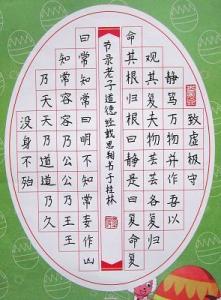 致虚极守
静笃万物并作吾以
观其复夫物芸芸各复归
命其根归根曰静是曰复命
节录老子道德经戴思书于桂林
曰常知常曰明不知常妄作凶
知常容容乃公公乃王王
乃天天乃道道乃久
没身不殆